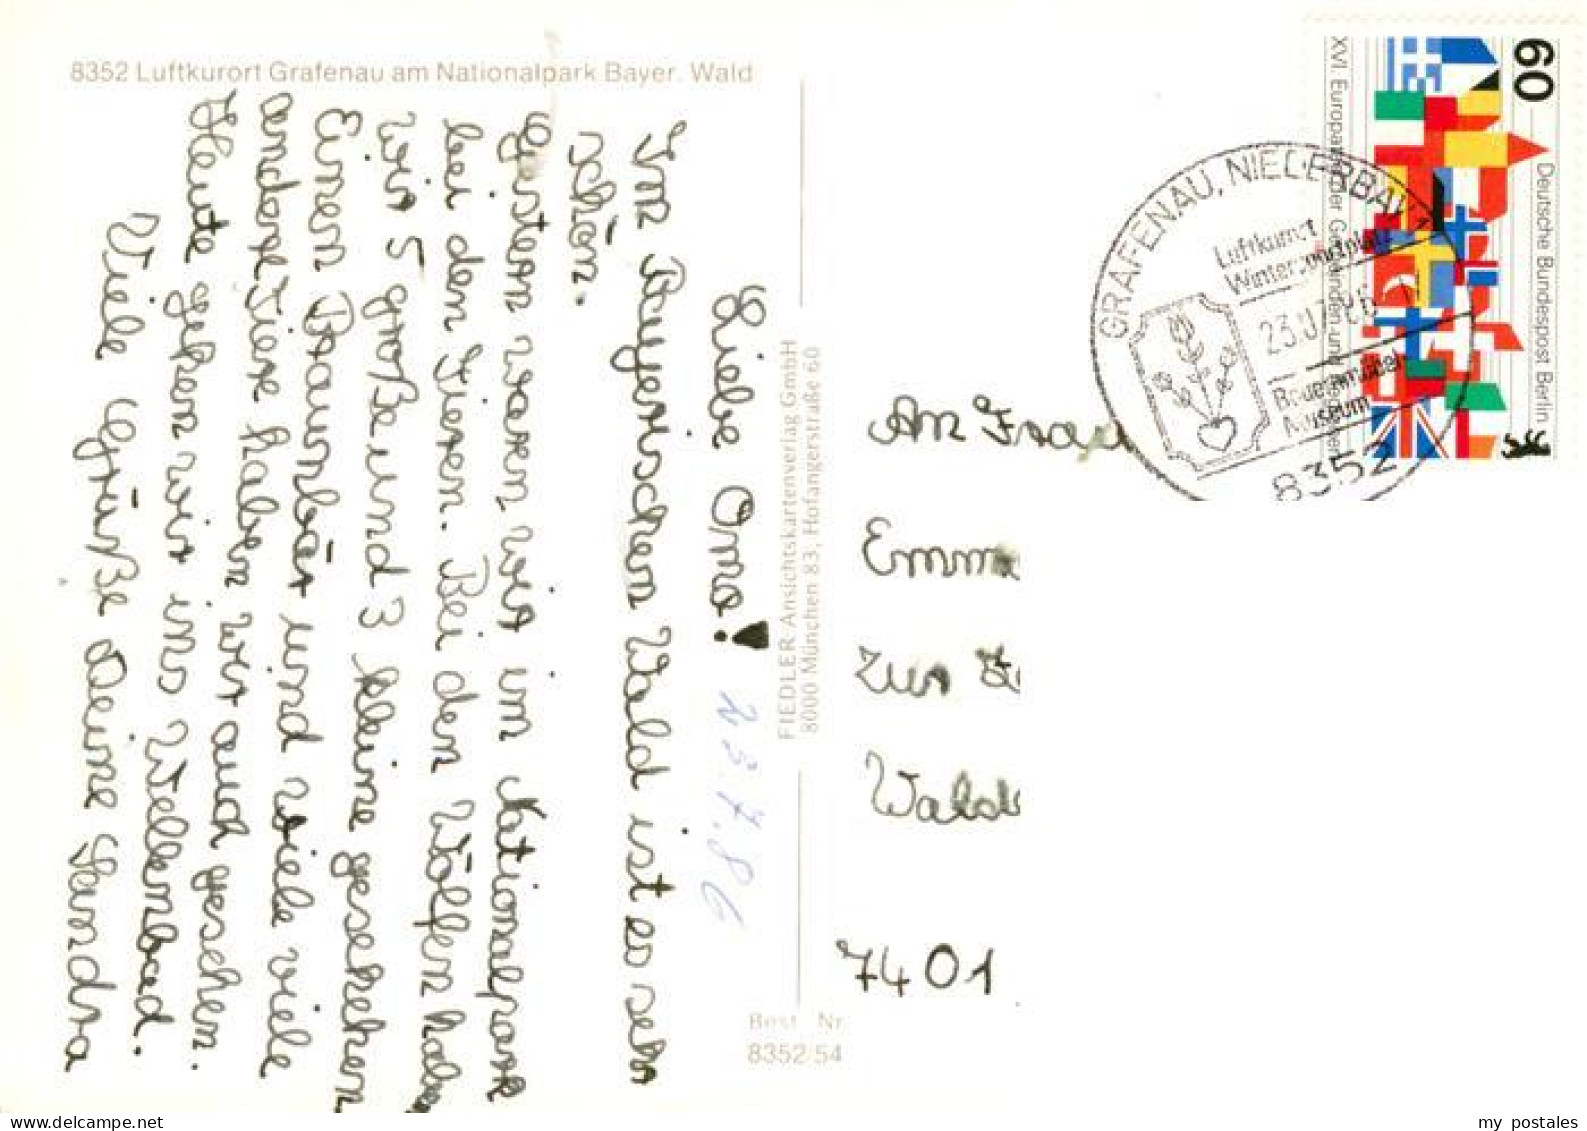 8352 Luftkurort Grafenau am Nationalpark Bayer. Wald
Liebe Oma!
23.7.86
Im Bayerischen Wald ist es sehr
schön.
Gestern waren wir im Nationalpark
bei den Tieren. Bei den Wölfen habe
wir 5 große und 3 kleine gesehen
Einen Braunbär und viele viele
andere Tiere haben wir auch gesehen.
Heute gehen wir ins Wellenbad.
Viele Grüße Deine Sandra
FIEDLER Ansichtskartenverlag GmbH
8000 München 83, Hofangerstraße 60
Best. Nr.
8352/54
An Frau
Emm
Zur
Wald
7401
GRAFENAU, NIEDERBAY.
Luftkurort
Wintersportplatz
23.07.86
Bauernmöbel
Museum
8352
60
Deutsche Bundespost Berlin
XVI. Europatag der Gemeinden und
my postales